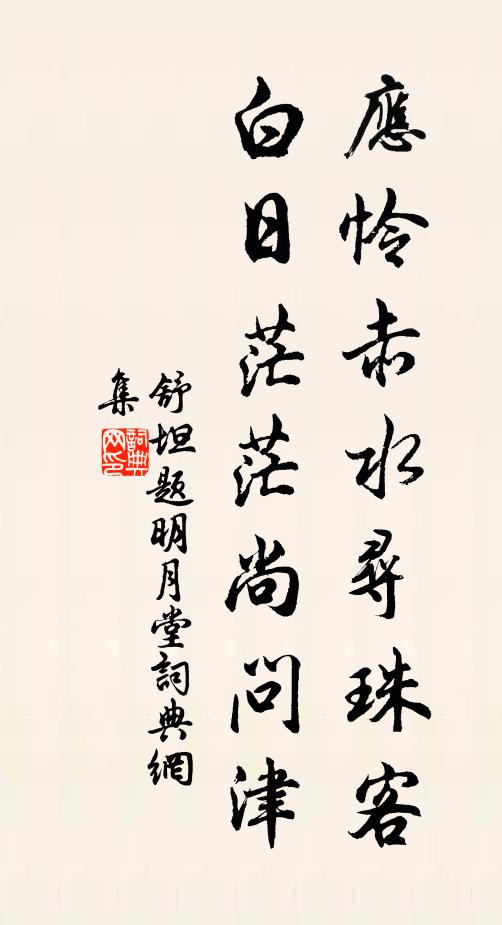 應怜赤水尋珠客
白日茫茫尚問津
舒坦题明月堂詞典網
集
詞典
网印